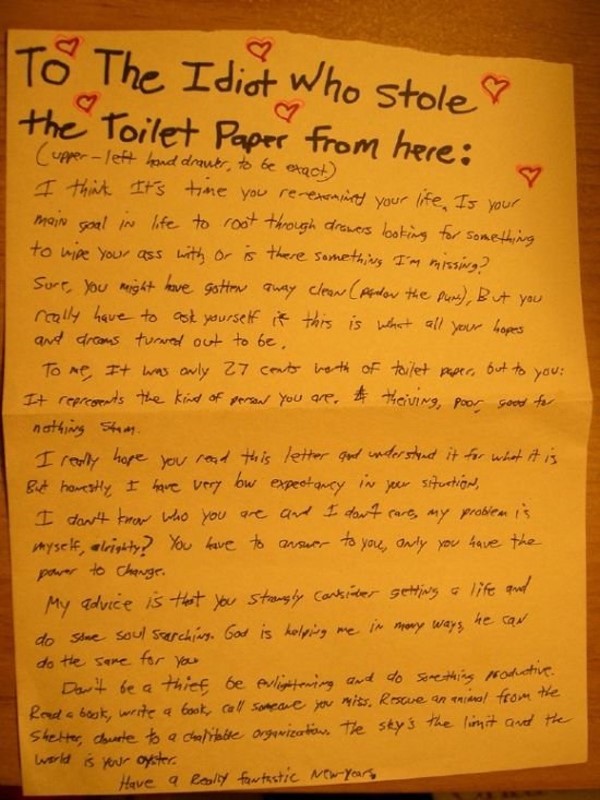 To The Idiot Who Stole
the Toilet Paper from here:
(upper-left hand drawer, to be exact)
I think It's time you re-examined your life. Is your
main goal in life to root through drawers looking for something
to wipe your ass with or is there something I'm missing?
Sure, you might have gotten away clean (pardon the pun), But you
really have to ask yourself if this is what all your hopes
and dreams turned out to be.
To me, It was only 27 cents worth of toilet paper, but to you:
It represents the kind of person you are. A theiving, poor, good for
nothing
I really hope you read this letter and understand it for what it is
But honestly, I have very low expectancy in your situation.
I don't know who you are and I don't care, my problem is
myself, alrighty? You have to answer to you, only you have the
power to change.
My advice is that you strongly consider getting a life and
do some soul searching. God is helping me in many ways, he can
do the same for you
Don't be a thief, be enlightening and do something productive.
Read a book, write a book, call someone you miss. Rescue an animal from the
shelter, donate to a charitable organization. The sky's the limit and the
world is your oyster.
Have a Really fantastic New-years,